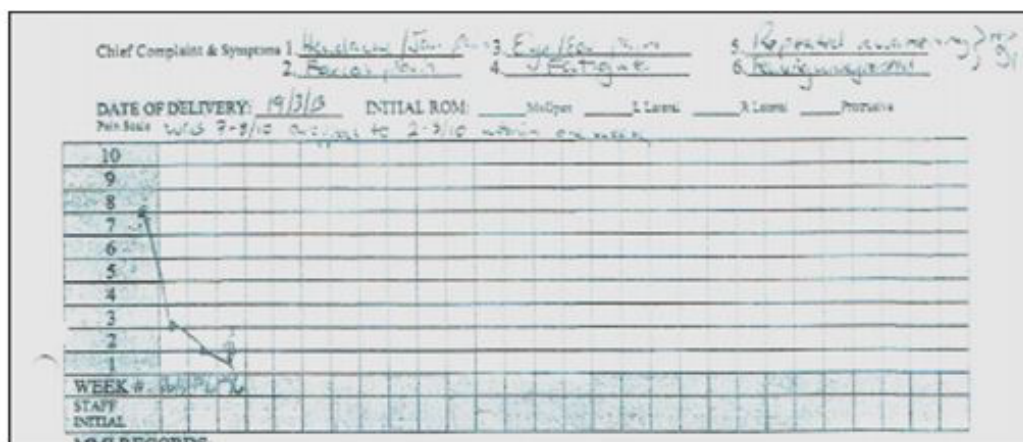 Chief Complaint & Symptoms 1. Headache / Jaw pain 3. Eye/Ear pain 5. Repeated
2. Facial pain 4. Fatigue 6.
DATE OF DELIVERY: 19/3/13 INITIAL ROM: Mx Open L Lateral R Lateral Protrusive
Pain Scale was 7-8/10 dropped to 2-3/10 within one week
10
9
8
7
6
5
4
3
2
1
WEEK #
STAFF
INITIAL